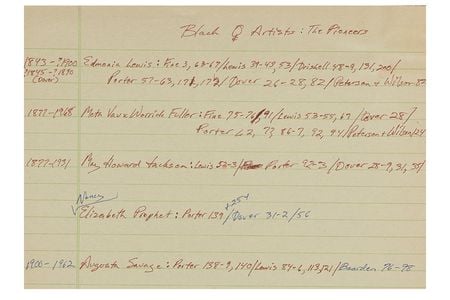 Black ♀ Artists: The Pioneers
1843-?1900 Edmonia Lewis: Fine 3, 63-67/Lewis 39-43, 53/Driskell 48-9, 131, 200/
?1845-?1890 Porter 57-63, 171, 173/Dover 26-28, 82/Peterson & Wilson 82
(Dover)
1877-1968 Meta Vaux Warrick Fuller: Fine 75-76, 91/Lewis 53-55, 67/Dover 28/
Porter 62, 77, 86-7, 92, 94/Peterson & Wilson 24
1877-1931 May Howard Jackson: Lewis 53/Porter 92-3/Dover 28-9, 31, 55/
Nancy
Elizabeth Prophet: Porter 139/Dover 31-2/56
+254
1900-1962 Augusta Savage: Porter 138-9, 140/Lewis 84-6, 113, 121/Bearden 96-98